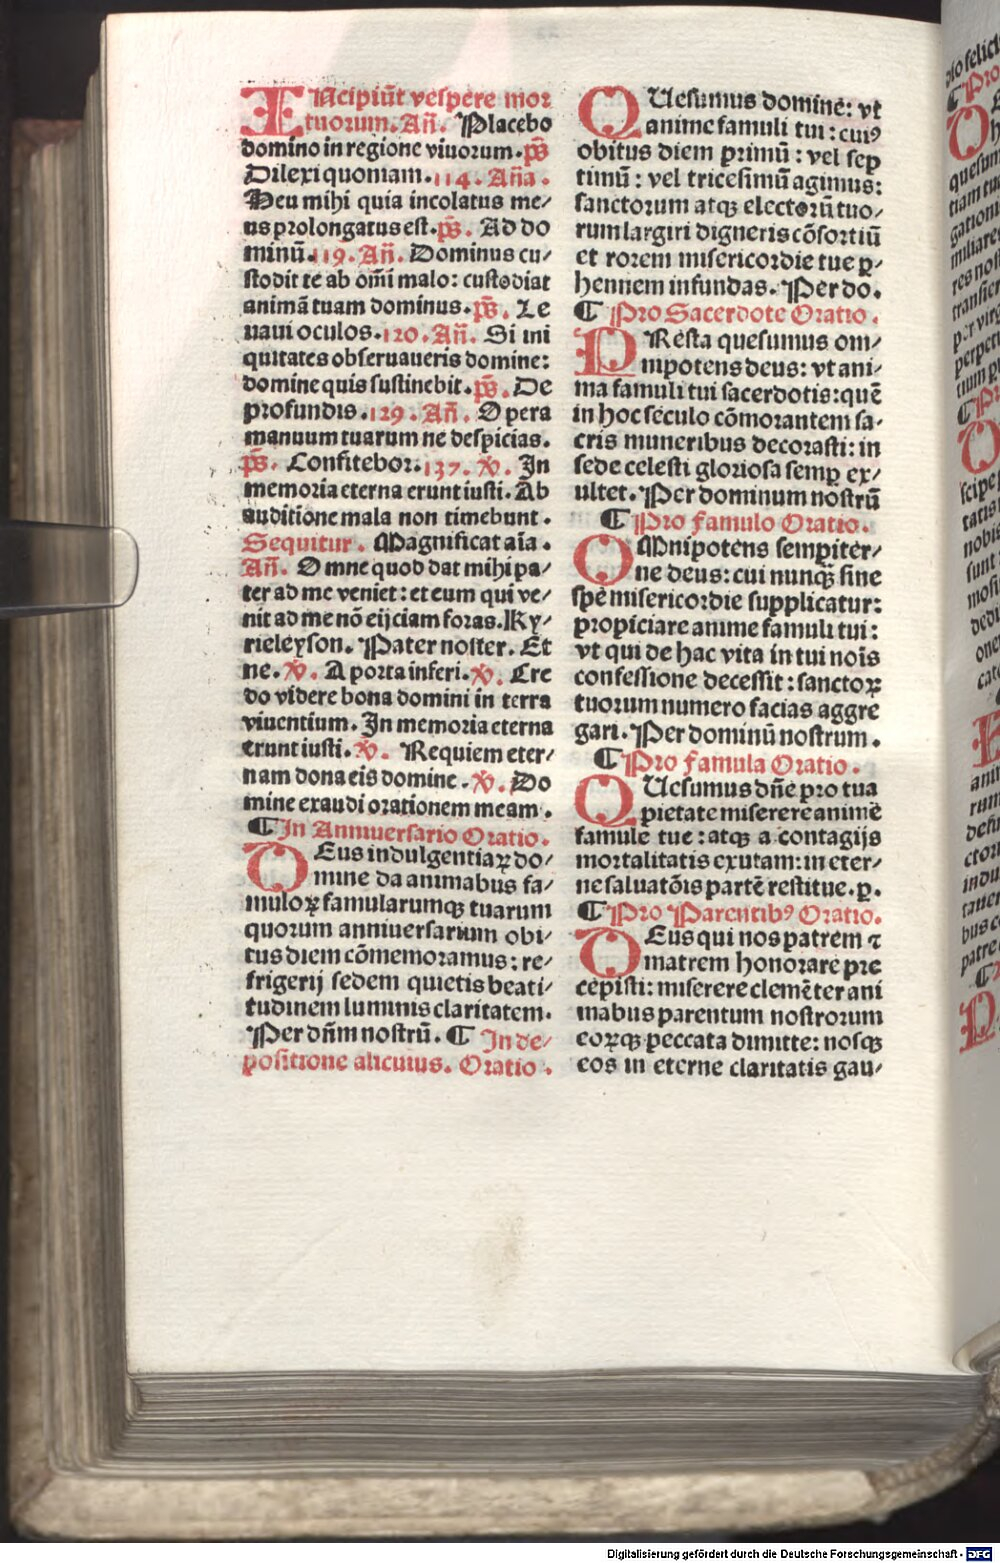 INcipiũt vespere mor
tuorum. Añ. Placebo
domino in regione viuorum. ps̃
Dilexi quoniam. 114. Aña.
Heu mihi quia incolatus me/
us prolongatus est. ps̃. Ad do
minũ. 119. Añ. Dominus cu/
stodit te ab om̃i malo: custodiat
animã tuam dominus. ps̃. Le
uaui oculos. 120. Añ. Si ini
quitates obseruaueris domine:
domine quis sustinebit. ps̃. De
profundis. 129. Añ. Opera
manuum tuarum ne despicias.
ps̃. Confitebor. 137. ℣. In
memoria eterna erunt iusti. Ab
auditione mala non timebunt.
Sequitur. Magnificat aĩa.
Añ. Omne quod dat mihi pa/
ter ad me veniet: et eum qui ve/
nit ad me nõ eijciam foras. Ky/
rieleyson. Pater noster. Et
ne. ℣. A porta inferi. ℣. Cre
do videre bona domini in terra
viuentium. In memoria eterna
erunt iusti. ℣. Requiem eter/
nam dona eis domine. ℣. Do
mine exaudi orationem meam.
¶ In Anniuersario Oratio.
DEus indulgentiaꝝ do/
mine da animabus fa/
muloꝝ famularumqꝫ tuarum
quorum anniuersarium obi/
tus diem cõmemoramus: re/
frigerij sedem quietis beati/
tudinem luminis claritatem.
Per dñm nostrũ. ¶ In de/
positione alicuius. Oratio.
QUesumus domine: vt
anime famuli tui: cuiꝰ
obitus diem primũ: vel sep
timũ: vel tricesimũ agimus:
sanctorum atqꝫ electorũ tuo/
rum largiri digneris cõsortiũ
et rorem misericordie tue ꝑ/
hennem infundas. Per do.
¶ Pro Sacerdote Oratio.
PResta quesumus om/
nipotens deus: vt ani/
ma famuli tui sacerdotis: quẽ
in hoc seculo cõmorantem sa/
cris muneribus decorasti: in
sede celesti gloriosa semꝑ ex/
ultet. Per dominum nostrũ
¶ Pro famulo Oratio.
OMnipotens sempiter/
ne deus: cui nunqꝫ̃ sine
spe misericordie supplicatur:
propiciare anime famuli tui:
vt qui de hac vita in tui noĩs
confessione decessit: sanctoꝝ
tuorum numero facias aggre
gari. Per dominũ nostrum.
¶ Pro famula Oratio.
QUesumus dñe pro tua
pietate miserere anime
famule tue: atqꝫ a contagijs
mortalitatis exutam: in eter/
ne saluatõis partẽ restitue. ꝑ.
¶ Pro Parentibꝰ Oratio.
DEus qui nos patrem ⁊
matrem honorare pre
cepisti: miserere clemẽter ani
mabus parentum nostrorum
eoꝝqꝫ peccata dimitte: nosqꝫ
eos in eterne claritatis gau/
Digitalisierung gefördert durch die Deutsche Forschungsgemeinschaft - DFG